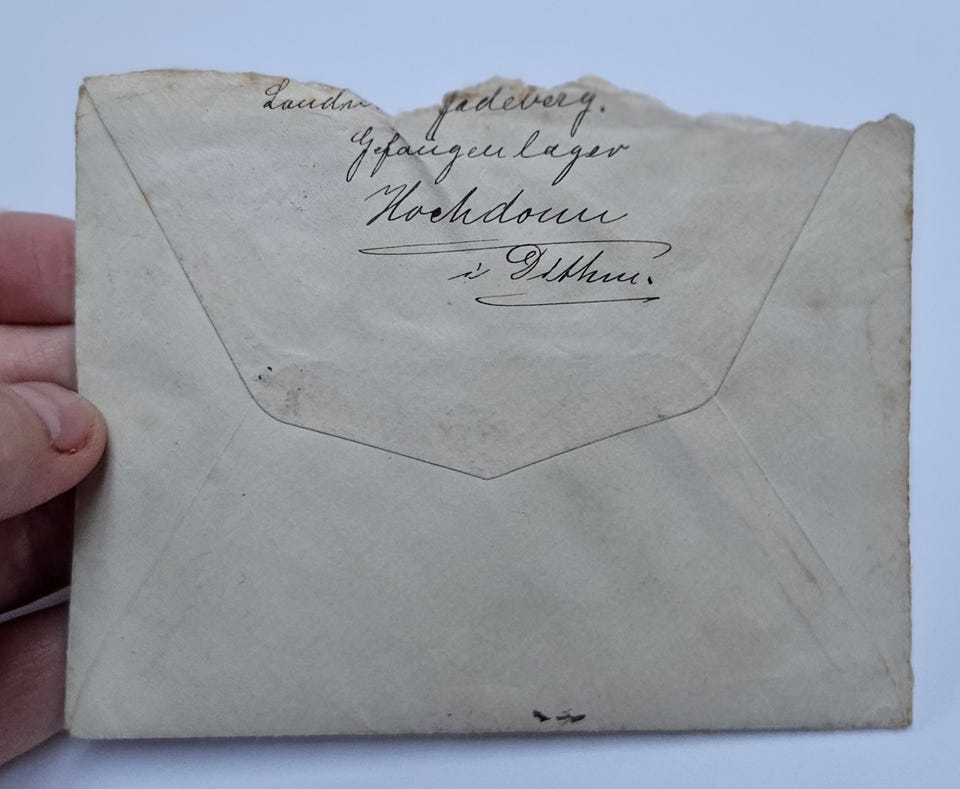 Landm. Jadeberg.
Gefangenlager
Hochdonn
i Dithm.